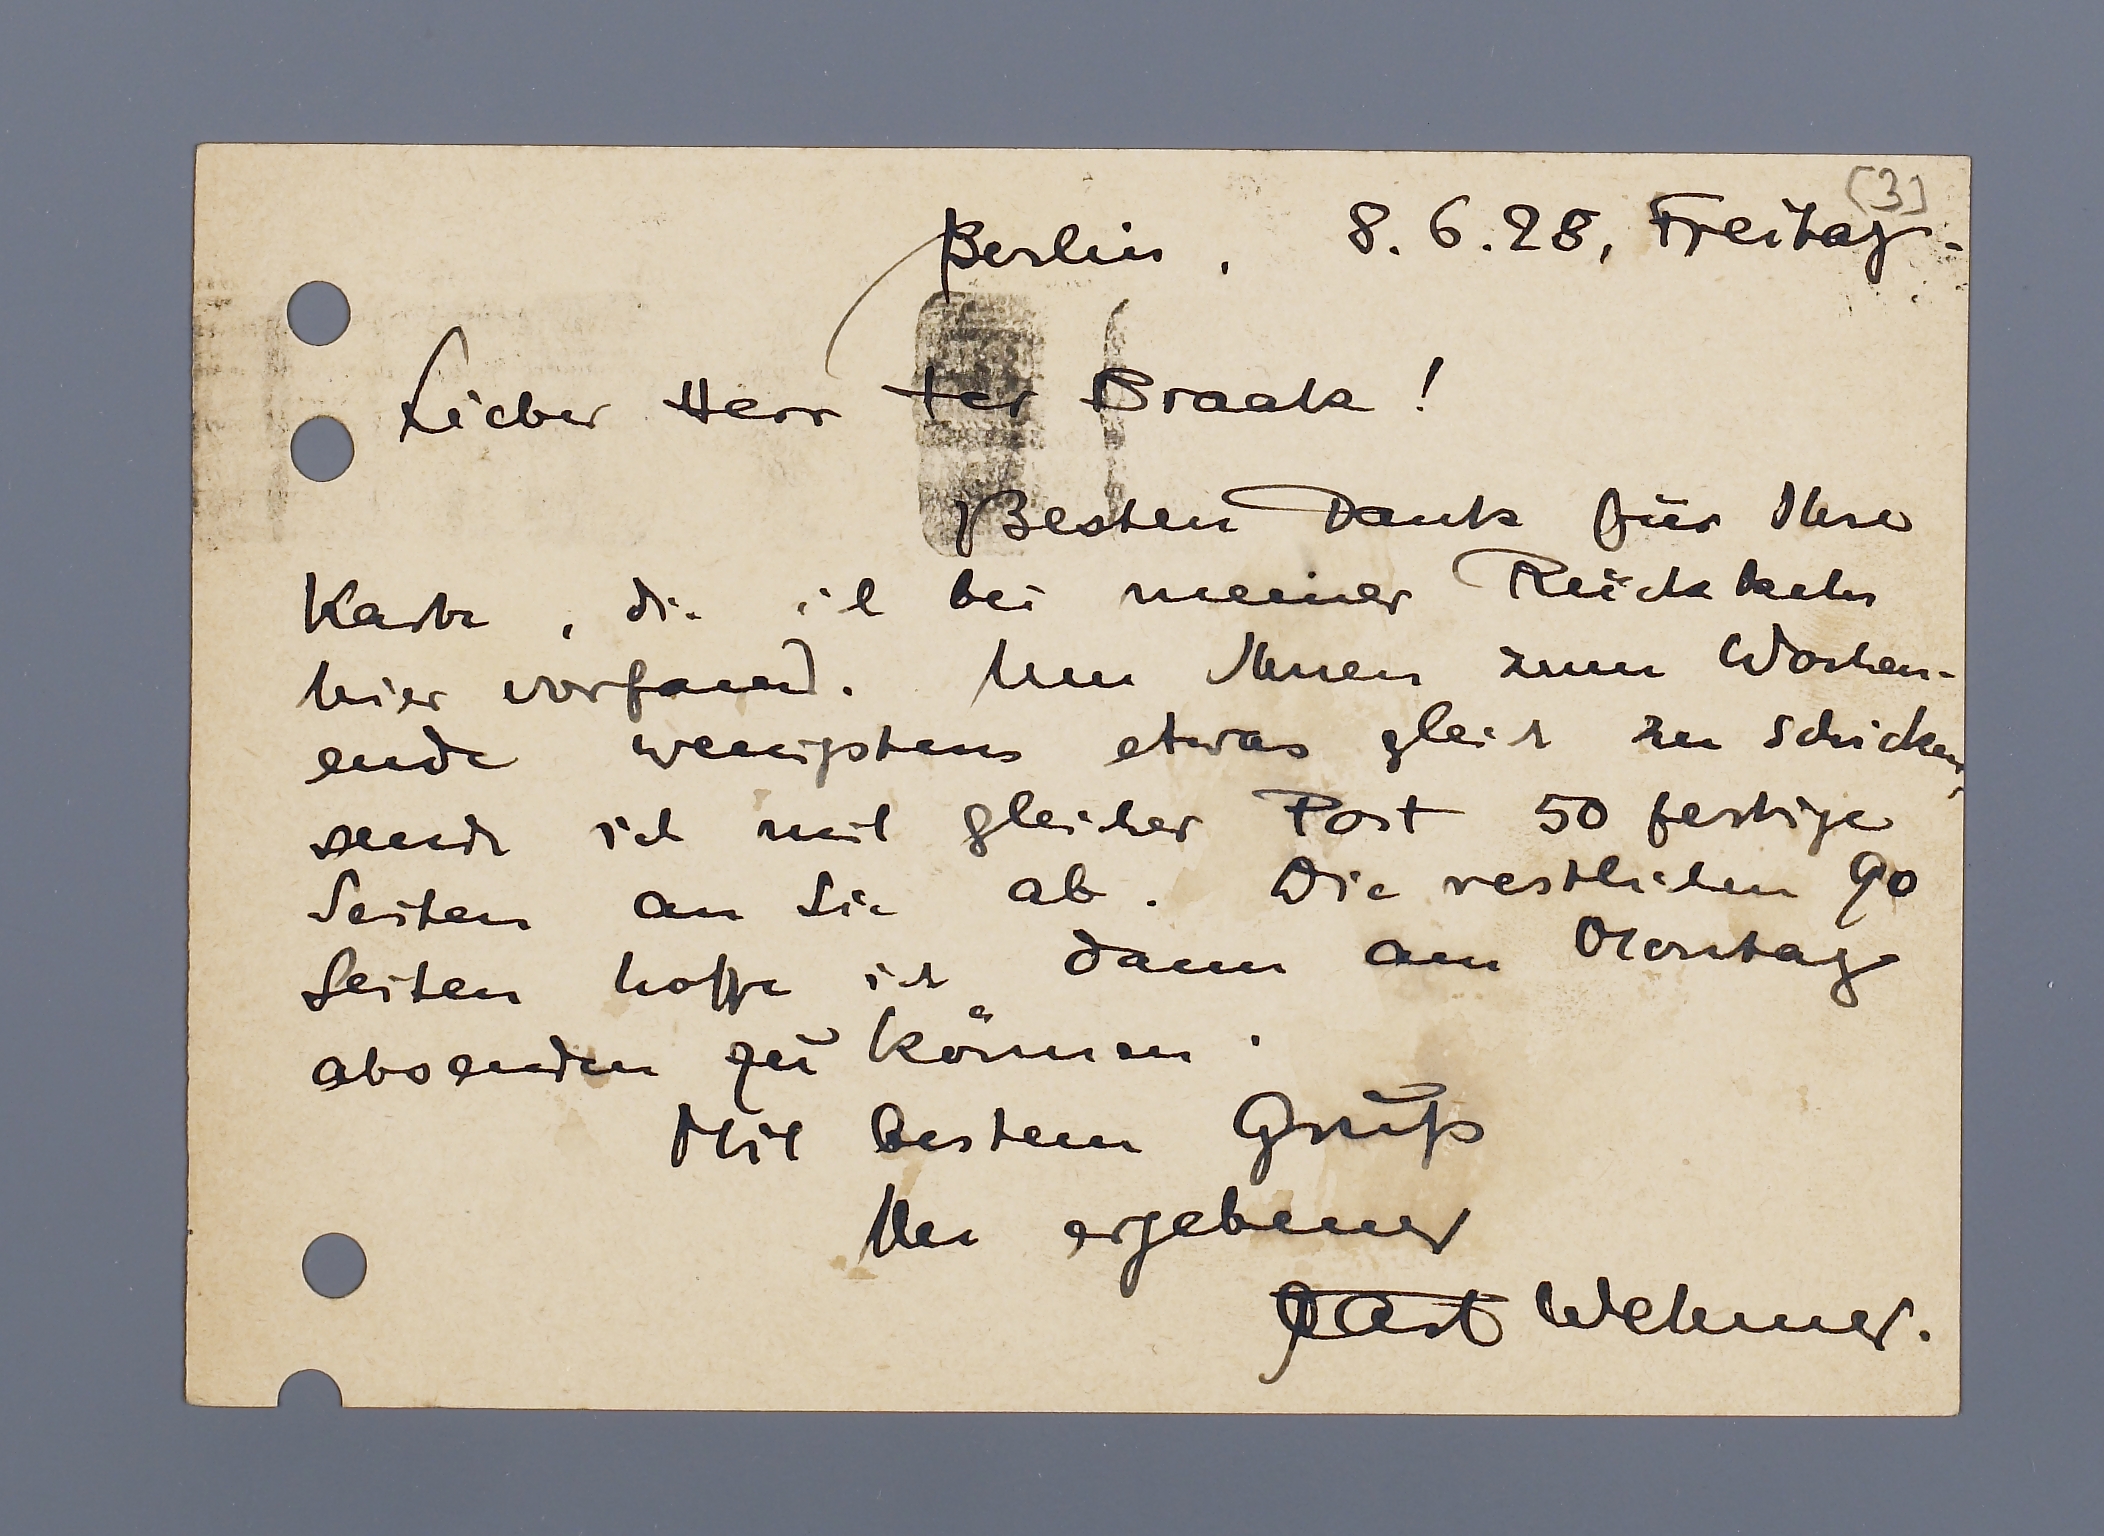 [3]
Berlin, 8.6.28, Freitag.
Lieber Herr ter Braak!
Besten Dank für Ihre
Karte, die ich bei meiner Rückkehr
hier vorfand. Um Ihnen zum Wochen-
ende wenigstens etwas gleich zu schicken,
sende ich mit gleicher Post 50 fertige
Seiten an Sie ab. Die restlichen 90
Seiten hoffe ich dann am Montag
absenden zu können.
Mit bestem Gruß
Ihr ergebener
Wehmer.